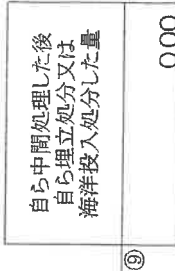 自ら中間処理した後
自ら埋立処分又は
海洋投入処分した量
⑨
0.00